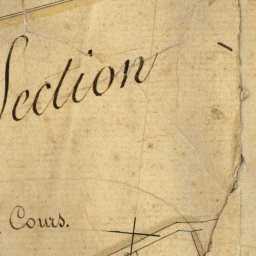 Section
Cours.